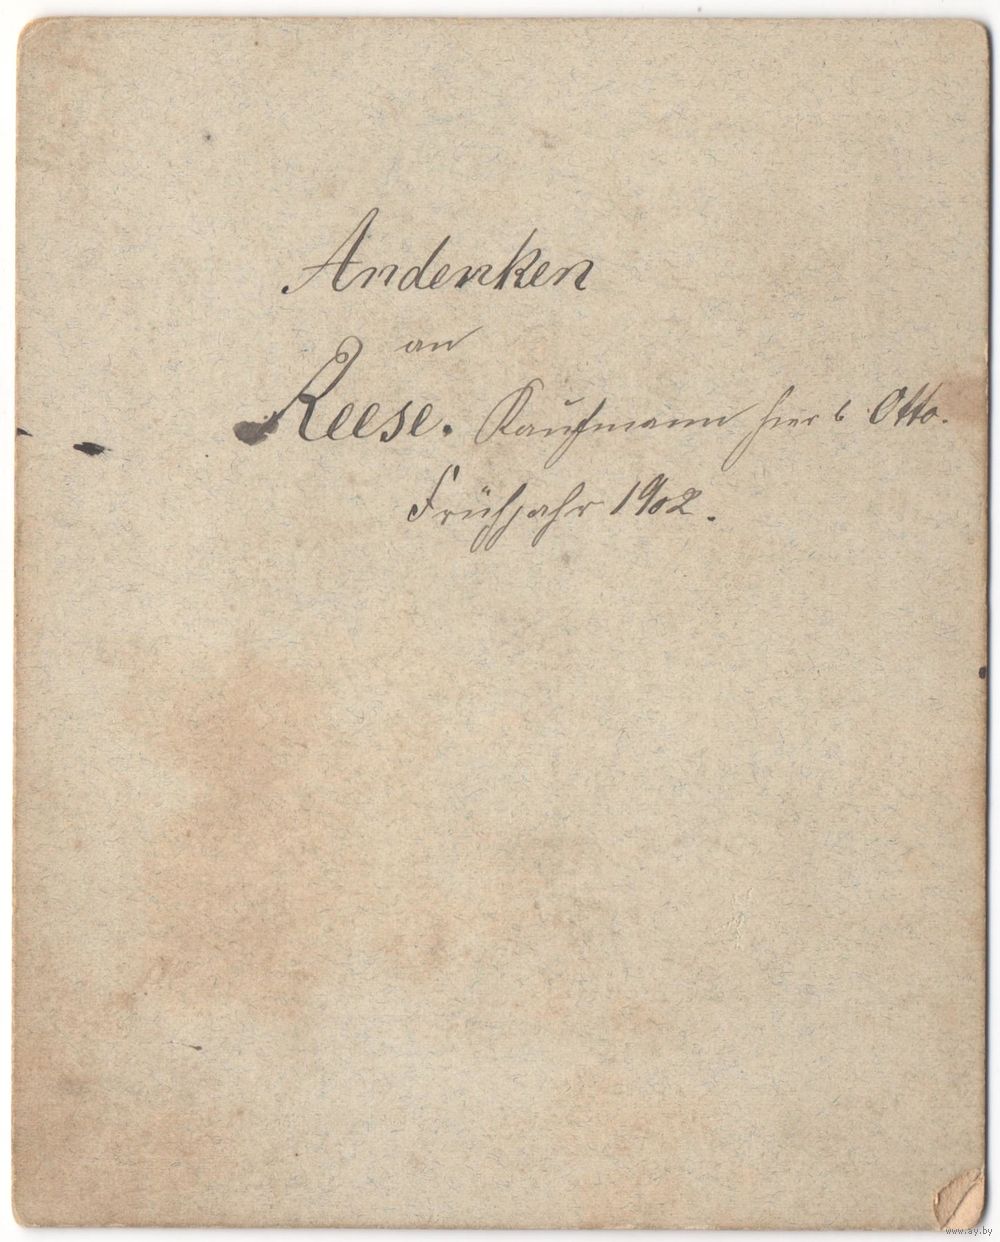 Andenken
an
Reese. Kaufmann hier b Otto.
Frühjahr 1902.
www.ay.by